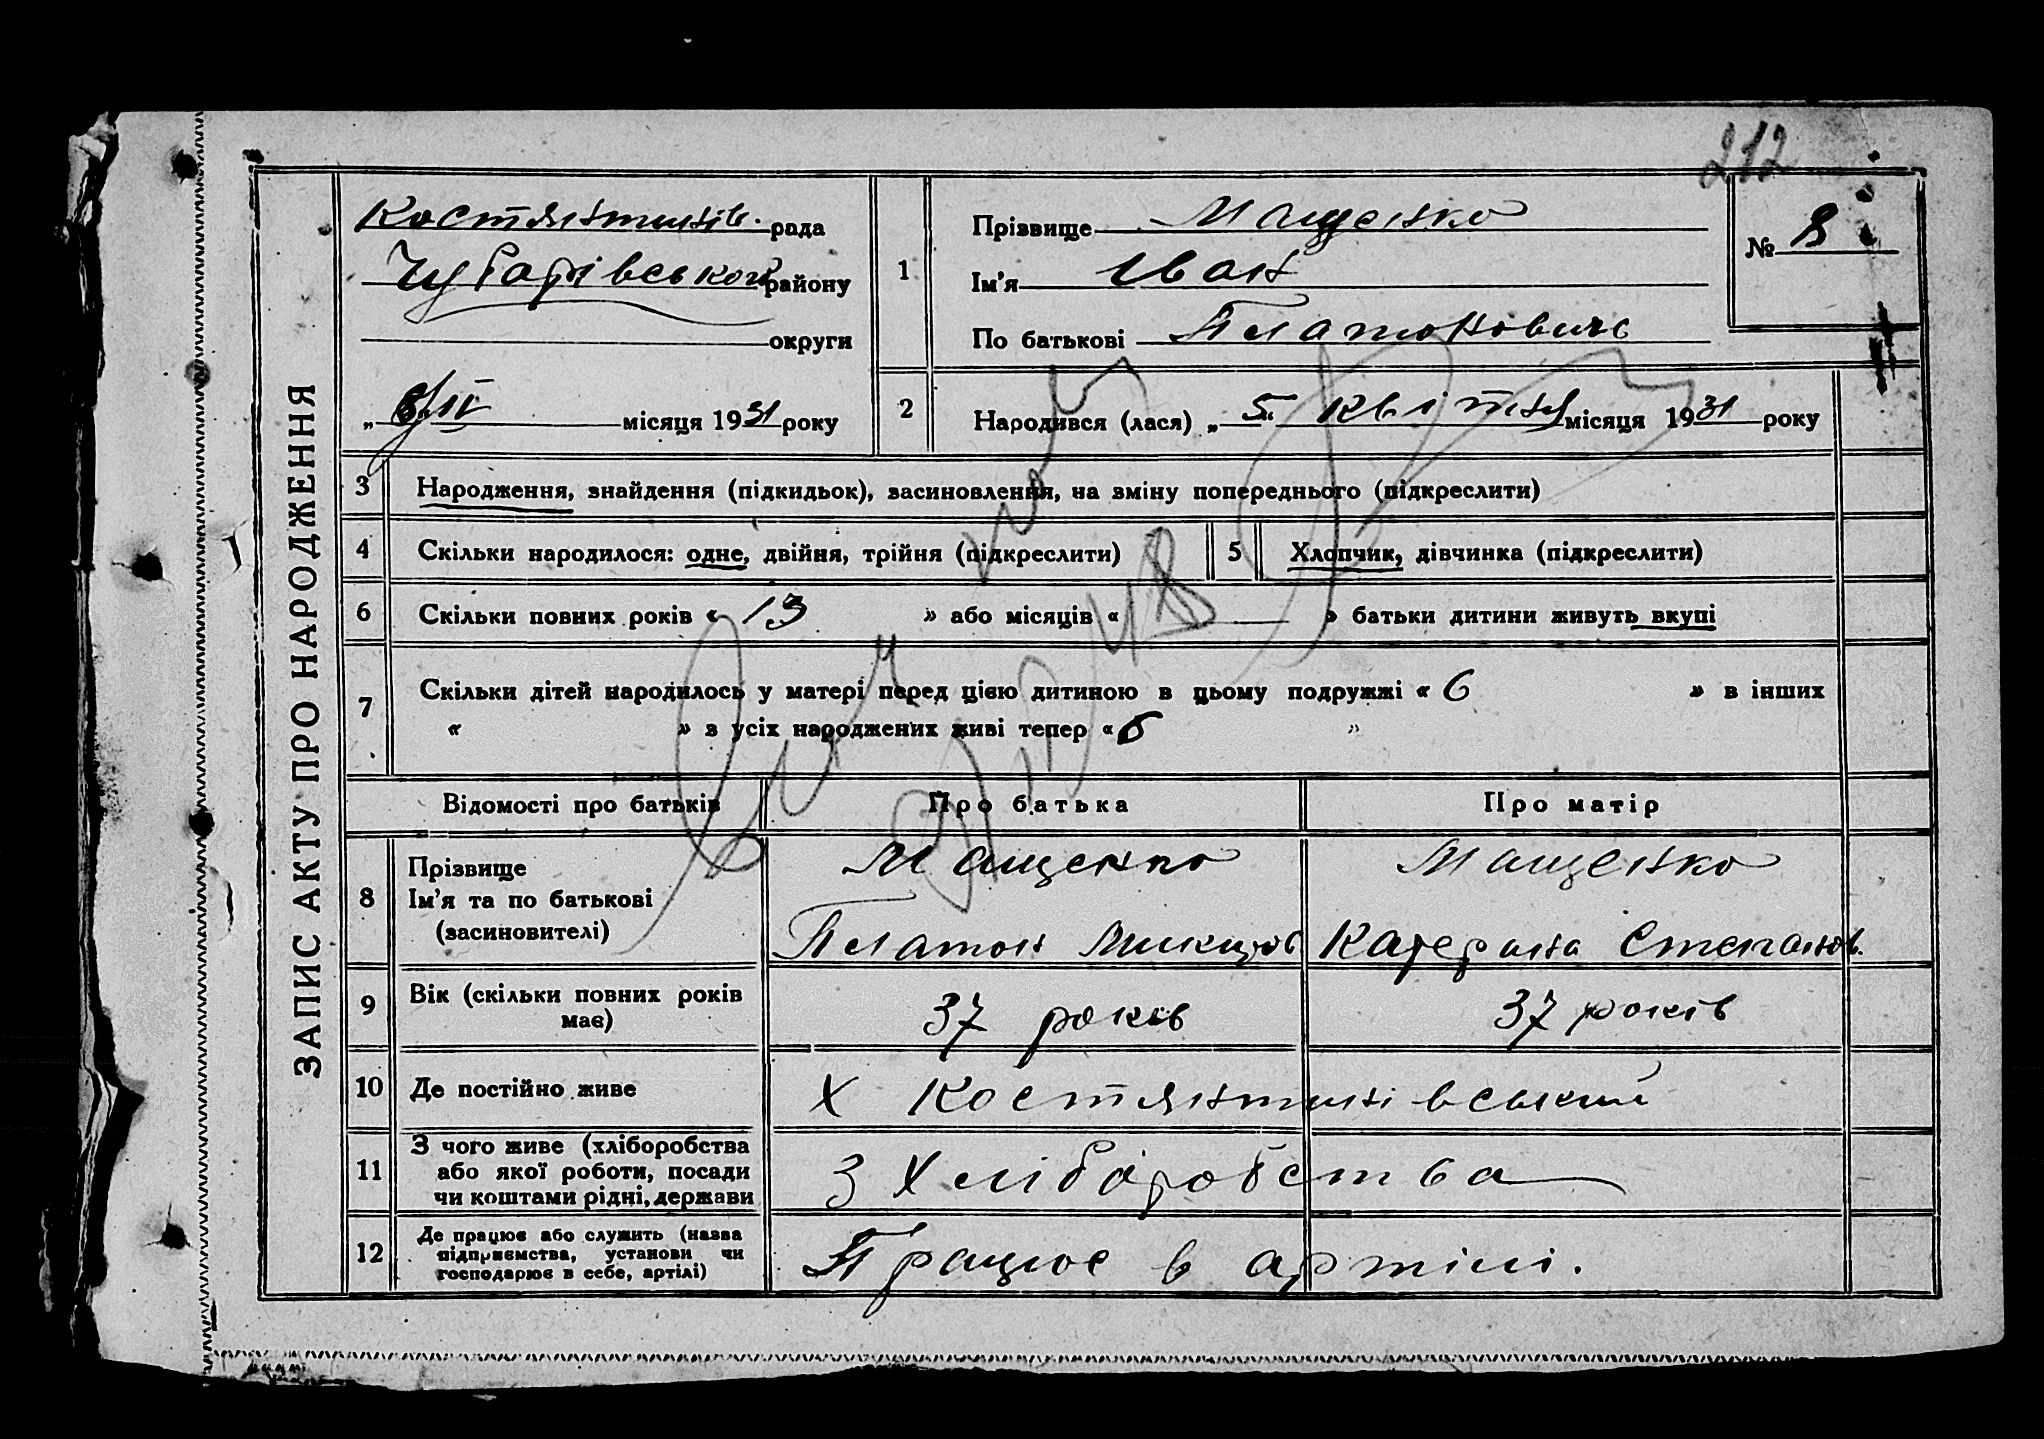 212
ЗАПИС АКТУ ПРО НАРОДЖЕННЯ
Костянтинів. рада
Чубарівського району
округи
„ 8/IV місяця 1931 року
1
Прізвище Мащенко
Ім'я Іван
По батькові Платонович
№ 8
2
Народився (лася) „ 5 " квітня місяця 1931 року
3 Народження, знайдення (підкидьок), засиновлення, на зміну попереднього (підкреслити)
4 Скільки народилося: одне, двійня, трійня (підкреслити) 5 Хлопчик, дівчинка (підкреслити)
6 Скільки повних років « 13 » або місяців « » батьки дитини живуть вкупі
7 Скільки дітей народилось у матері перед цією дитиною в цьому подружжі « 6 » в інших
« » з усіх народжених живі тепер « 6 »
Відомості про батьків Про батька Про матір
8 Прізвище Мащенко Мащенко
Ім'я та по батькові
(засиновителі) Платон Микитов Катерина Степанов.
9 Вік (скільки повних років
має) 37 років 37 років
10 Де постійно живе Х Костянтинівський
11 З чого живе (хліборобства
або якої роботи, посади
чи коштами рідні, держави З Хліборобства
12 Де працює або служить (назва
підприємства, установи чи
господарює в себе, артілі) Працює в артілі.